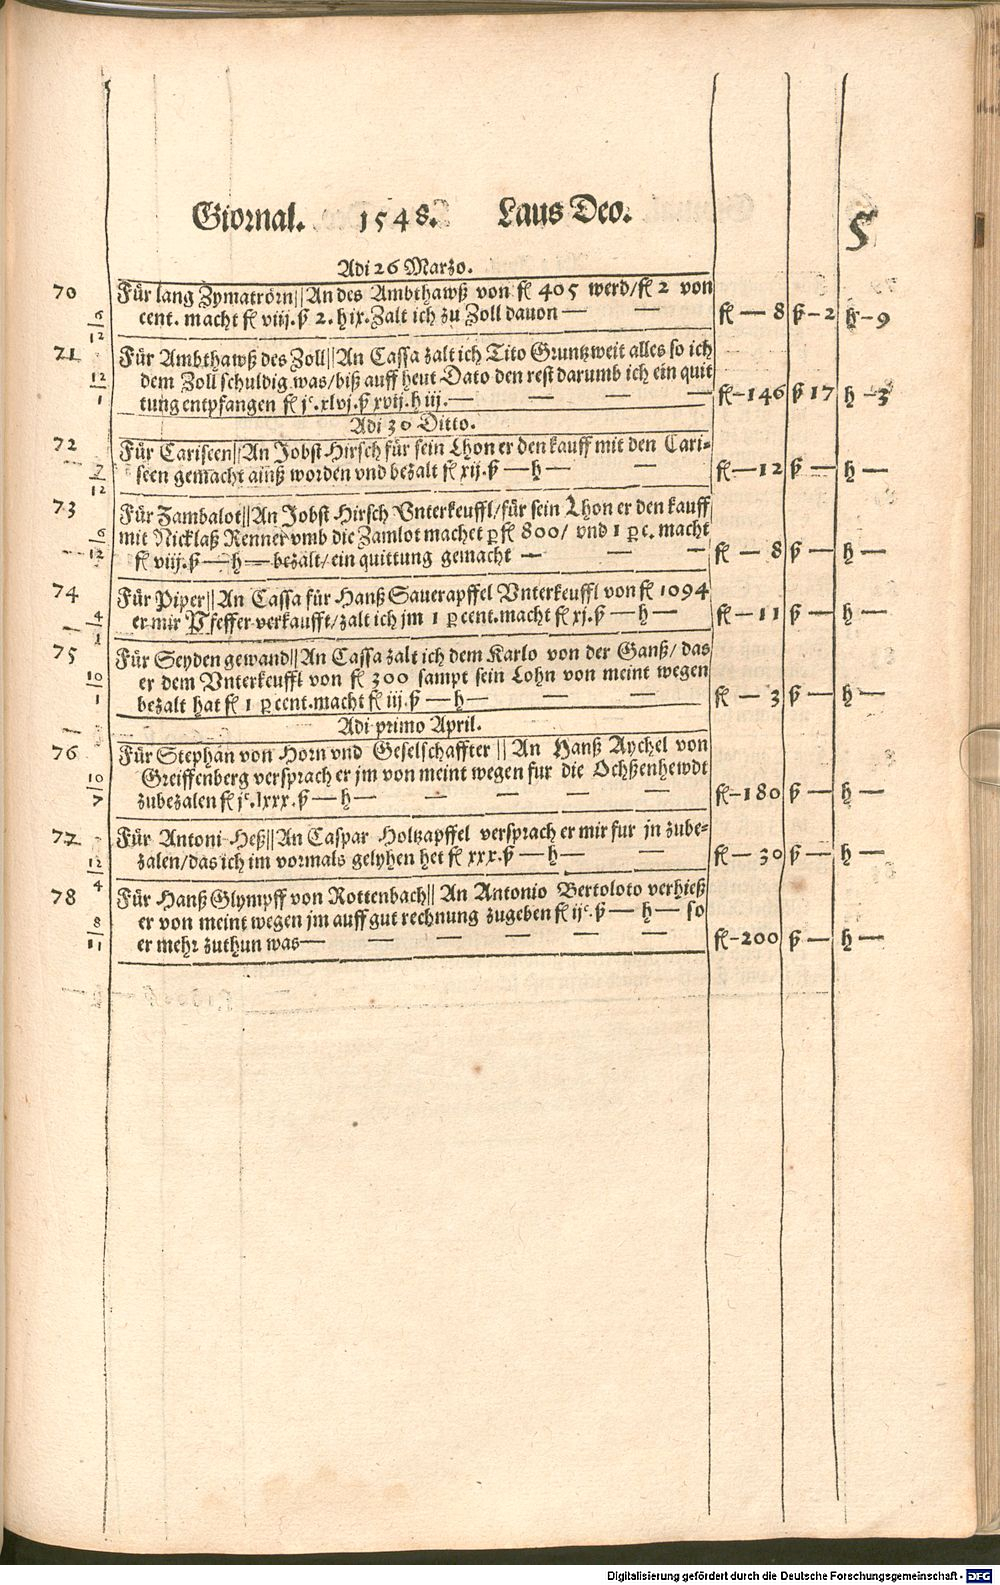 Giornal. 1548. Laus Deo. 5
Adi 26 Marzo.
70 Für lang Zymatrörn || An des Ambthawß von fl 405 werd/ fl 2 von
6/12 cent. macht fl viij. ß 2. h ix. Zalt ich zu Zoll dauon — — fl — 8 ß – 2 h – 9
71 Für Ambthawß des Zoll || An Cassa zalt ich Tito Gruntzweit alles so ich
12/1 dem Zoll schuldig was/ biß auff heut Dato den rest darumb ich ein quit
tung entpfangen fl jc. xlvj. ß xvij. h iij. — — — — fl – 146 ß 17 h – 3
Adi 30 Ditto.
72 Für Cariseen || An Jobst Hirsch für sein Lhon er den kauff mit den Cari-
7/12 seen gemacht ainß worden vnd bezalt fl xij. ß — h — — fl — 12 ß — h —
73 Für Zambalot || An Jobst Hirsch Vnterkeuffl/ für sein Lhon er den kauff
6/12 mit Nicklaß Renner vmb die Zamlot machet ꝑ fl 800/ vnd 1 ꝑ c. macht
fl viij. ß — h — bezalt/ ein quittung gemacht — — — fl — 8 ß — h —
74 Für Piper || An Cassa für Hanß Sauerapffel Vnterkeuffl von fl 1094
4/1 er mir Pfeffer verkaufft/ zalt ich jm 1 ꝑ cent. macht fl xj. ß — h — fl — 11 ß — h —
75 Für Seyden gewand || An Cassa zalt ich dem Karlo von der Ganß/ das
10/1 er dem Vnterkeuffl von fl 300 sampt sein Lohn von meint wegen
bezalt hat fl 1 ꝑ cent. macht fl iij. ß — h — — — fl — 3 ß — h —
Adi primo April.
76 Für Stephan von Horn vnd Geselschaffter || An Hanß Aychel von
10/7 Greiffenberg versprach er jm von meint wegen fur die Ochßenhewdt
zubezalen fl jc. lxxx. ß — h — — — — — fl – 180 ß — h —
77 Für Antoni Heß || An Caspar Holtzapffel versprach er mir fur jn zube-
12/4 zalen/ das ich im vormals gelyhen het fl xxx. ß — h — — fl — 30 ß — h —
78 Für Hanß Glympff von Rottenbach || An Antonio Bertoloto verhieß
8/11 er von meint wegen jm auff gut rechnung zugeben fl ijc. ß — h — so
er mehr zuthun was — — — — — — fl – 200 ß — h —
Digitalisierung gefördert durch die Deutsche Forschungsgemeinschaft - DFG